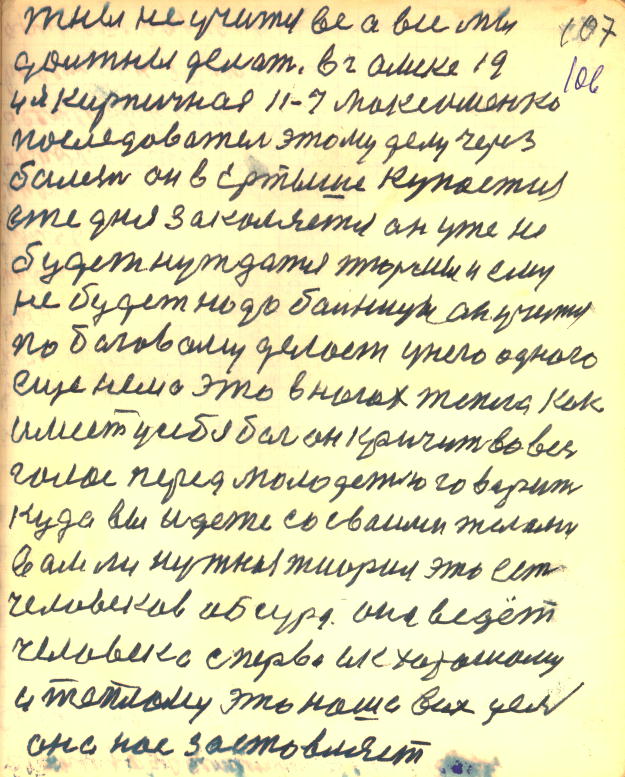 тны не учится а все мы 107
должны делат. в г омске 19 106
ия Кирпичная 11-7 Максименко
последовател этому делу через
болезн он в Ертыше Купается
вже дня Закаляется он уже не
будет нуждатся тюрьми и ему
не будет надо болници он учится
по Боговому делает унего одного
еще нема это в ногах тепла Как
имеет у себя бог он Кричит во вес
голос перед молодежю говорит
Куда вы идете со своими телами
вам ли нужныя тиория это ест
человеков абсурд. она ведёт
человека сперва ик хорошому
и теплому это наша всих цел
она нас заставляет